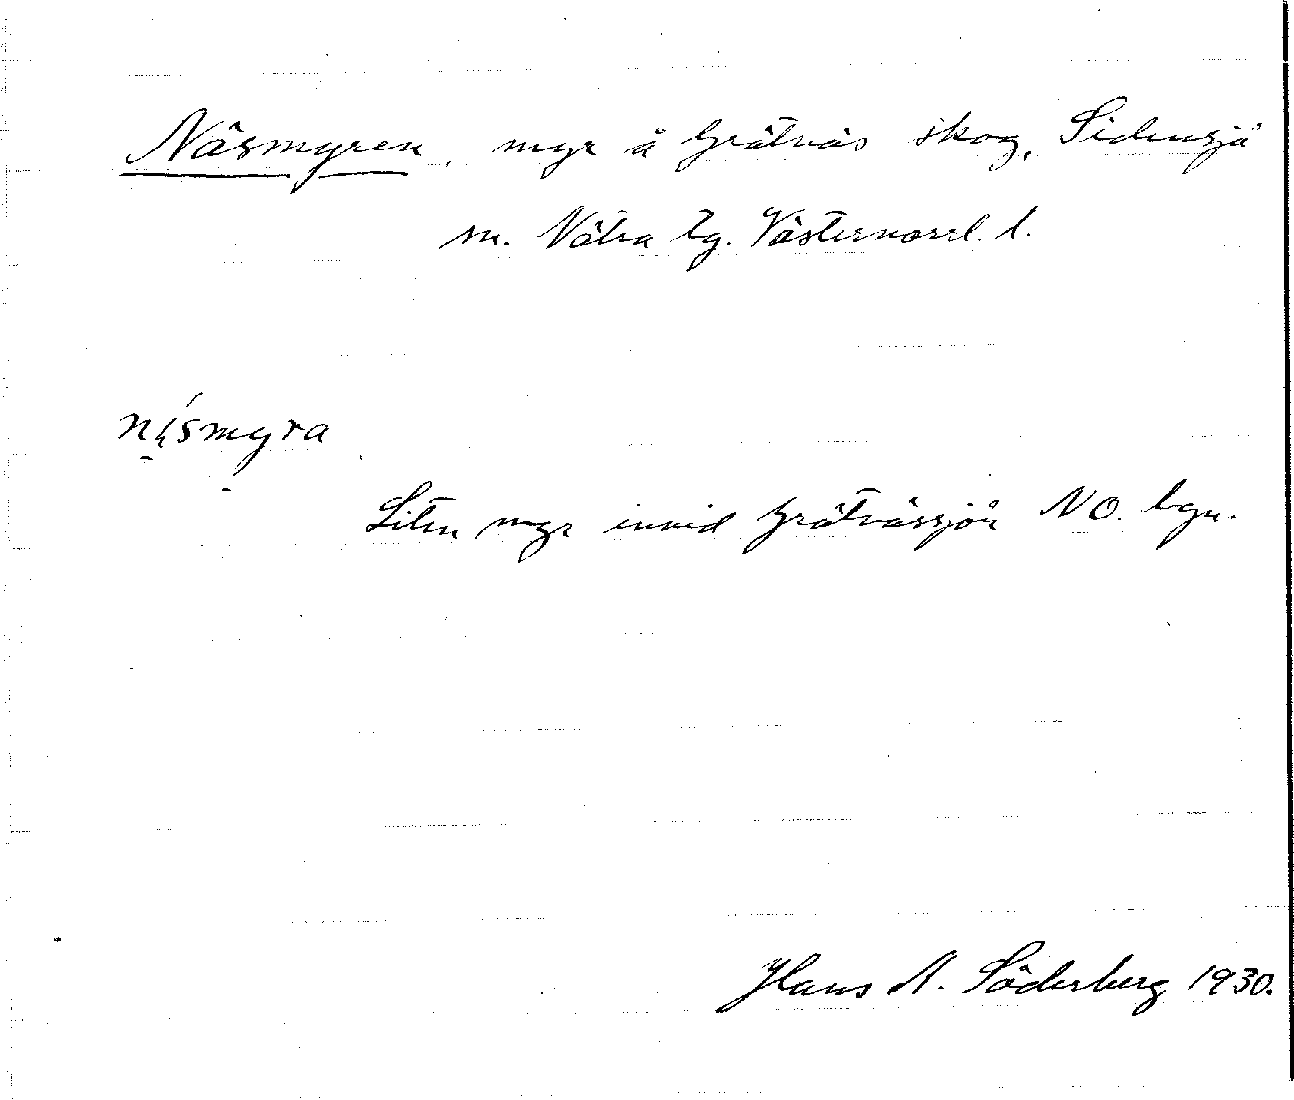 Näsmyren, myr å Grätnäs skog, Sidensjö
sn. Nätra tg. Västernorrl. l.
näsmyra
Liten myr invid Grätnässjön NO. byn.
Hans A. Söderberg 1930.